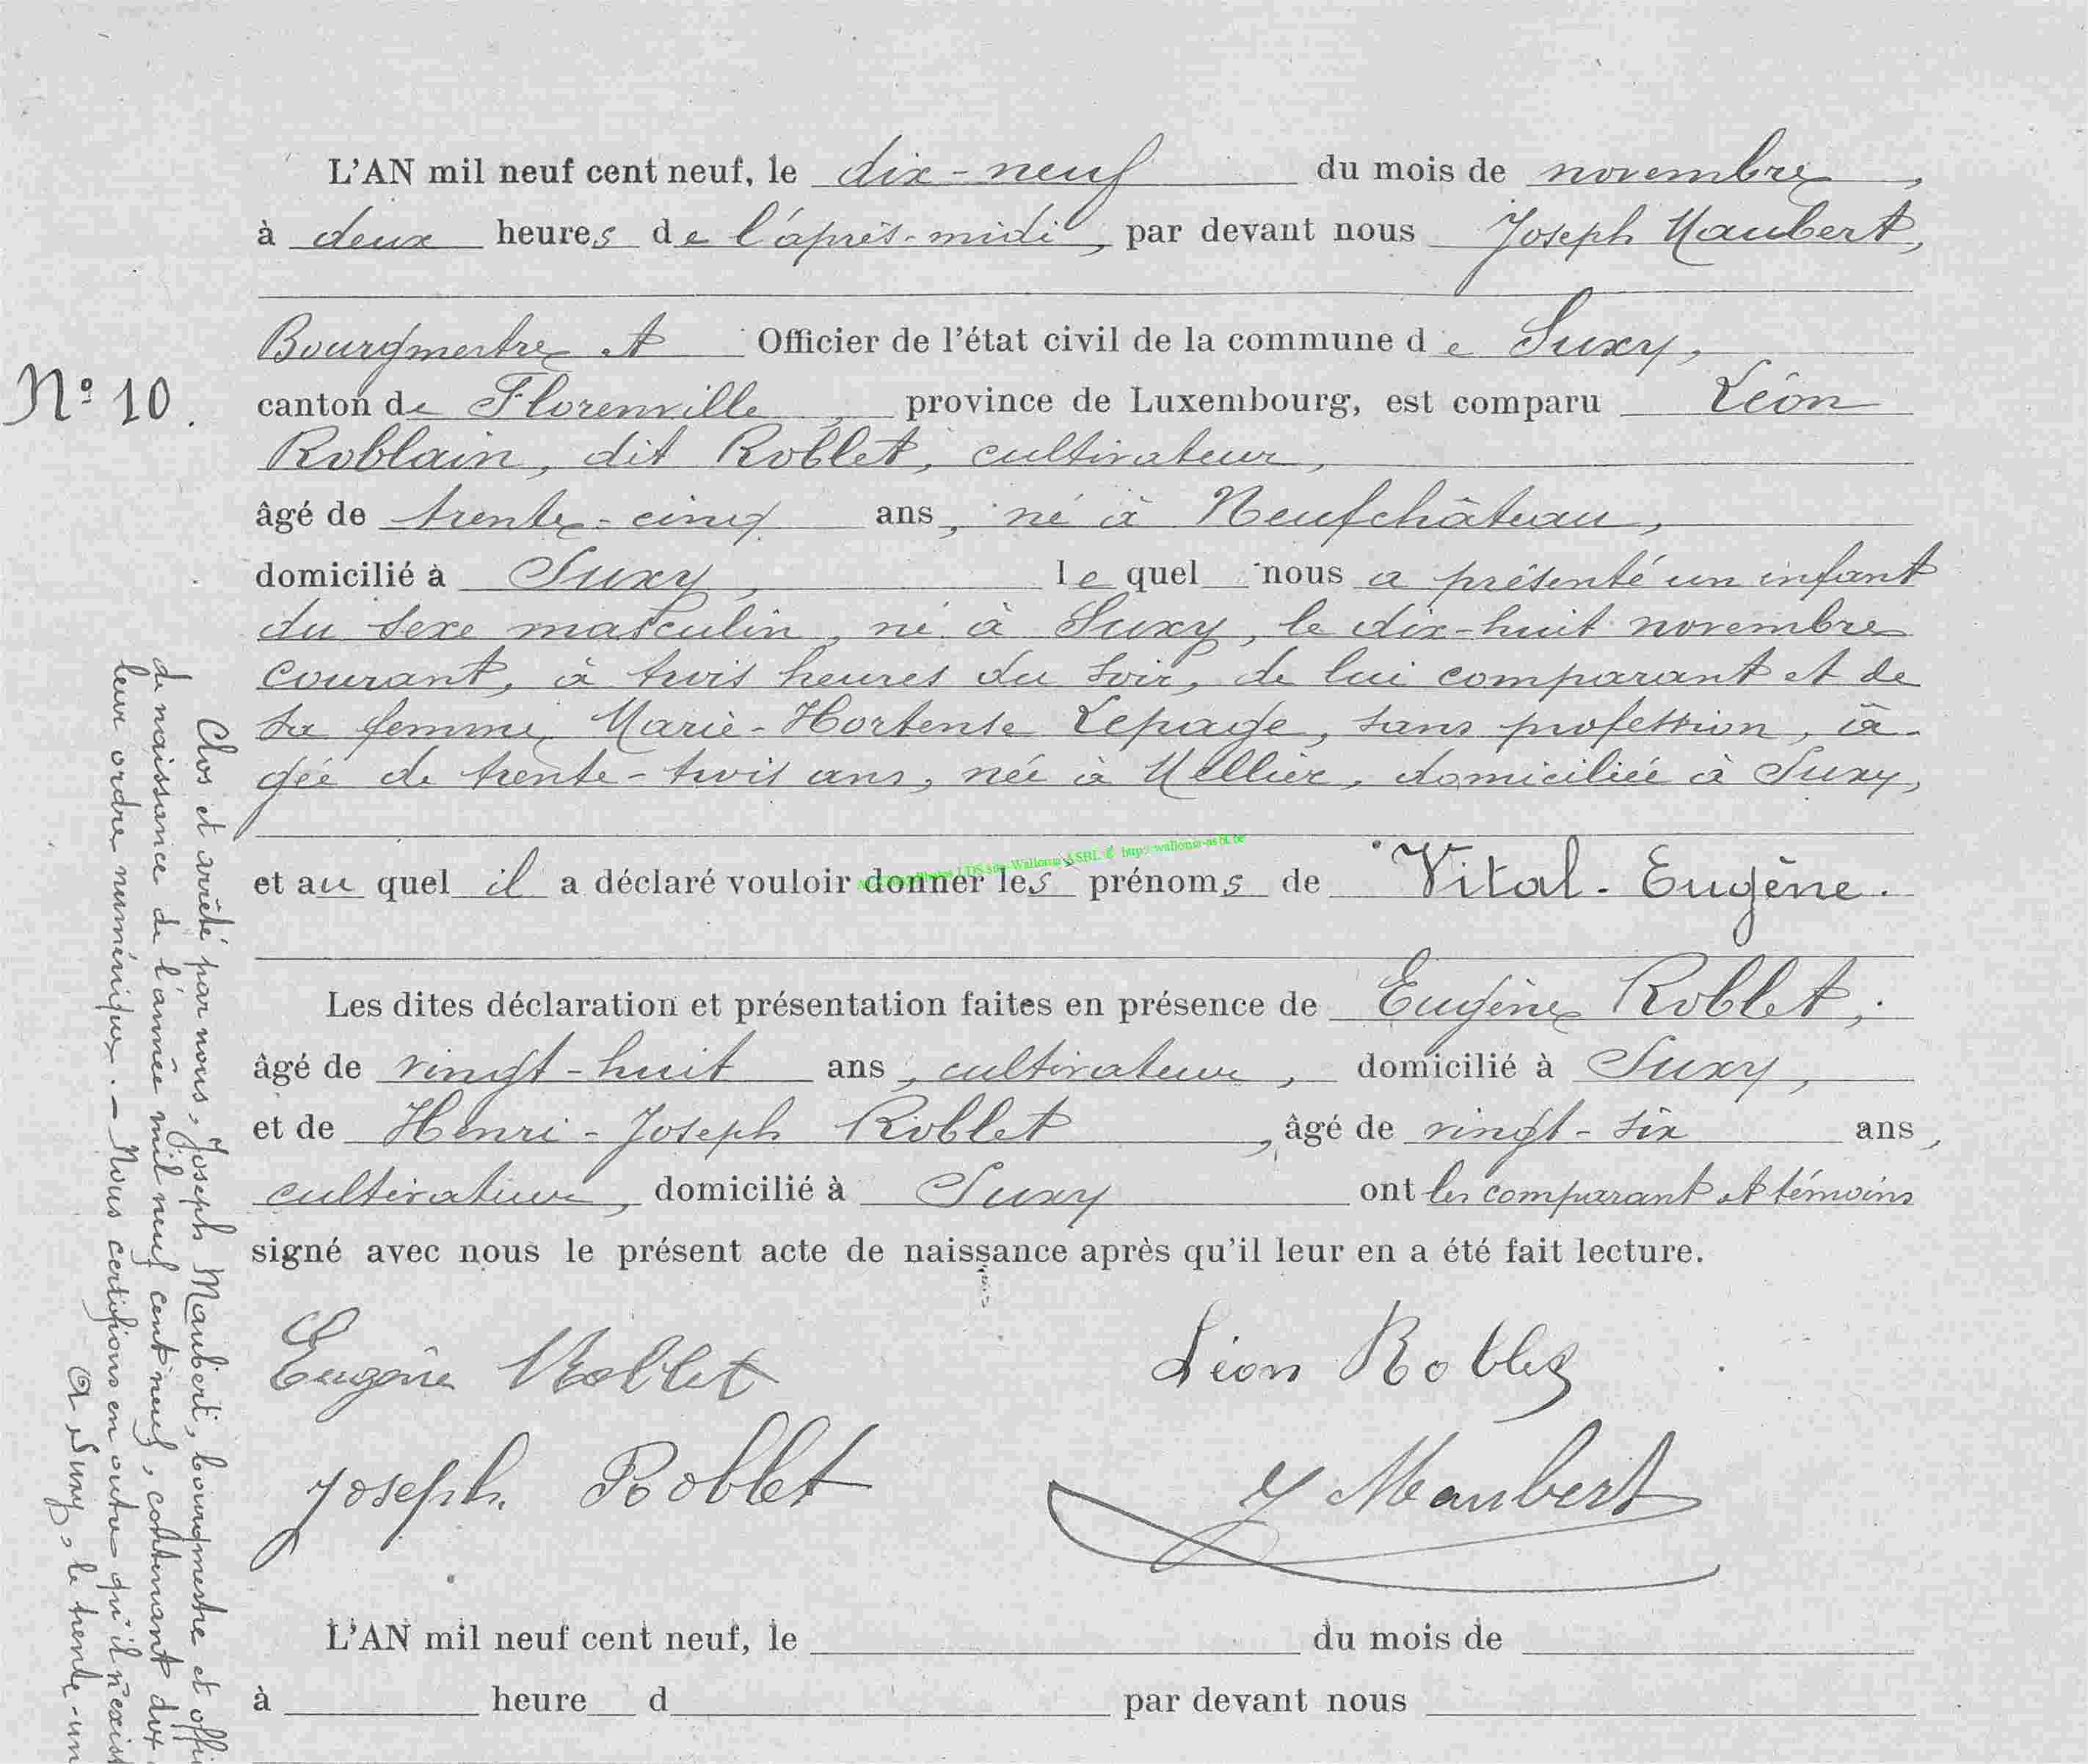 L'AN mil neuf cent neuf, le dix-neuf du mois de novembre,
à deux heures de l'après-midi, par devant nous Joseph Maubert,
Bourgmestre et Officier de l'état civil de la commune de Suxy,
N° 10.
canton de Florenville, province de Luxembourg, est comparu Léon
Roblain, dit Roblet, cultivateur,
âgé de trente-cinq ans, né à Neufchâteau,
domicilié à Suxy, lequel nous a présenté un enfant
du sexe masculin, né à Suxy, le dix-huit novembre
courant, à trois heures du soir, de lui comparant et de
sa femme Marie-Hortense Lepage, sans profession, â-
gée de trente-trois ans, née à Mellier, domiciliée à Suxy,
et auquel il a déclaré vouloir donner les prénoms de Vital-Eugène.
Les dites déclaration et présentation faites en présence de Eugène Roblet,
âgé de vingt-huit ans, cultivateur, domicilié à Suxy,
et de Henri-Joseph Roblet, âgé de vingt-six ans,
cultivateur, domicilié à Suxy ont les comparant et témoins
signé avec nous le présent acte de naissance après qu'il leur en a été fait lecture.
Eugène Roblet Léon Roblet
Joseph Roblet J Maubert
L'AN mil neuf cent neuf, le du mois de
à heure d par devant nous
Clos et arrêté par nous, Joseph Maubert, bourgmestre et offi
de naissance de l'année mil neuf cent neuf, contenant dix
leur ordre numérique. - Nous certifions en outre qu'il n'exist
A Suxy, le trente-un